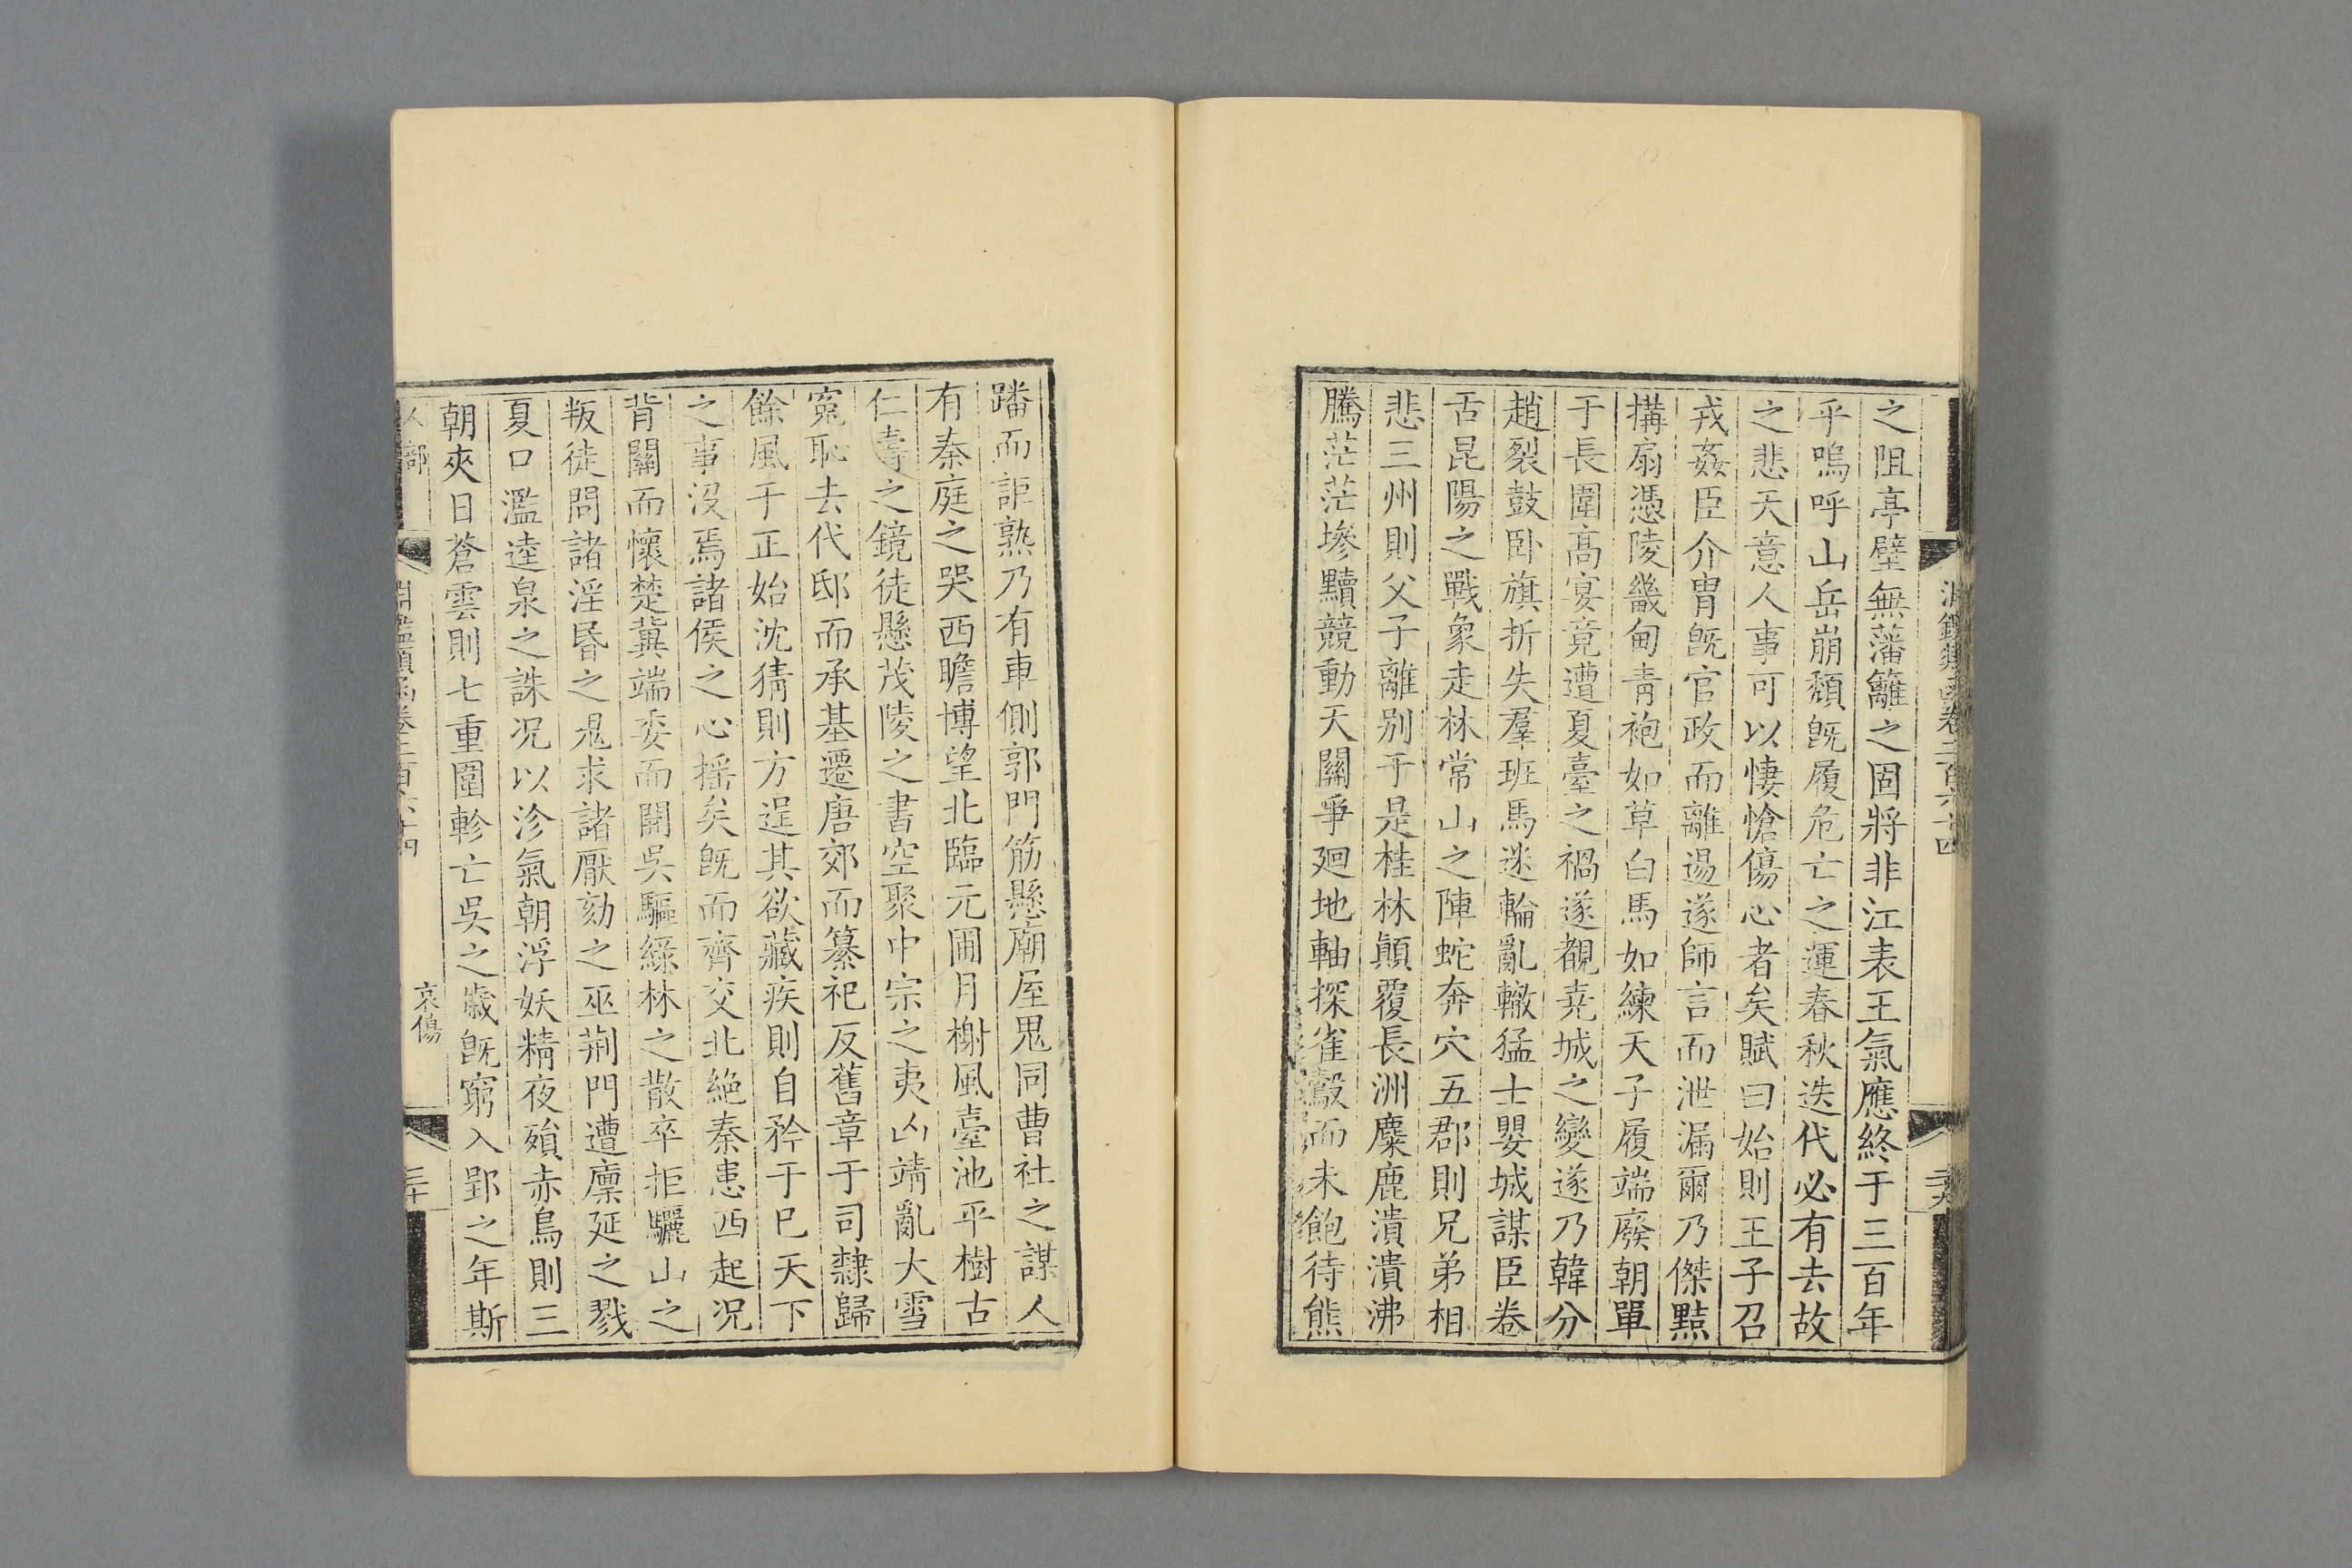 之阻亭壁無藩籬之固將非江表王氣應終于三百年
乎嗚呼山岳崩頽旣履危亡之運春秋迭代必有去故
之悲天意人事可以悽愴傷心者矣賦曰始則王子召
戎姦臣介胄旣官政而離逷遂師言而泄漏爾乃傑黠
構扇憑陵畿甸青袍如草白馬如練天子履端廢朝單
于長圍高宴竟遭夏臺之禍遂覩堯城之變遂乃韓分
趙裂鼓卧旗折失羣班馬迷輪亂轍猛士嬰城謀臣卷
舌昆陽之戰象走林常山之陣蛇奔穴五郡則兄弟相
悲三州則父子離别于是桂林顛覆長洲麋鹿潰潰沸
騰茫茫墋黷競動天關爭廻地軸探雀鷇而未飽待熊
蹯而詎熟乃有車側郭門筋懸廟屋鬼同曹社之謀人
有秦庭之哭西瞻博望北臨元圃月榭風臺池平樹古
仁壽之鏡徒懸茂陵之書空聚中宗之夷凶靖亂大雪
寃恥去代邸而承基遷唐郊而纂祀反舊章于司隸歸
餘風于正始沈猜則方逞其欲藏疾則自矜于已天下
之事沒焉諸侯之心揺矣旣而齊交北絶秦患西起況
背關而懷楚冀端委而開吳驅緑林之散卒拒驪山之
叛徒問諸淫昬之鬼求諸厭劾之巫荆門遭廪延之戮
夏口濫逵泉之誅况以沴氣朝浮妖精夜殞赤烏則三
朝夾日蒼雲則七重圍軫亡吳之歲旣窮入郢之年斯
哀傷
三十